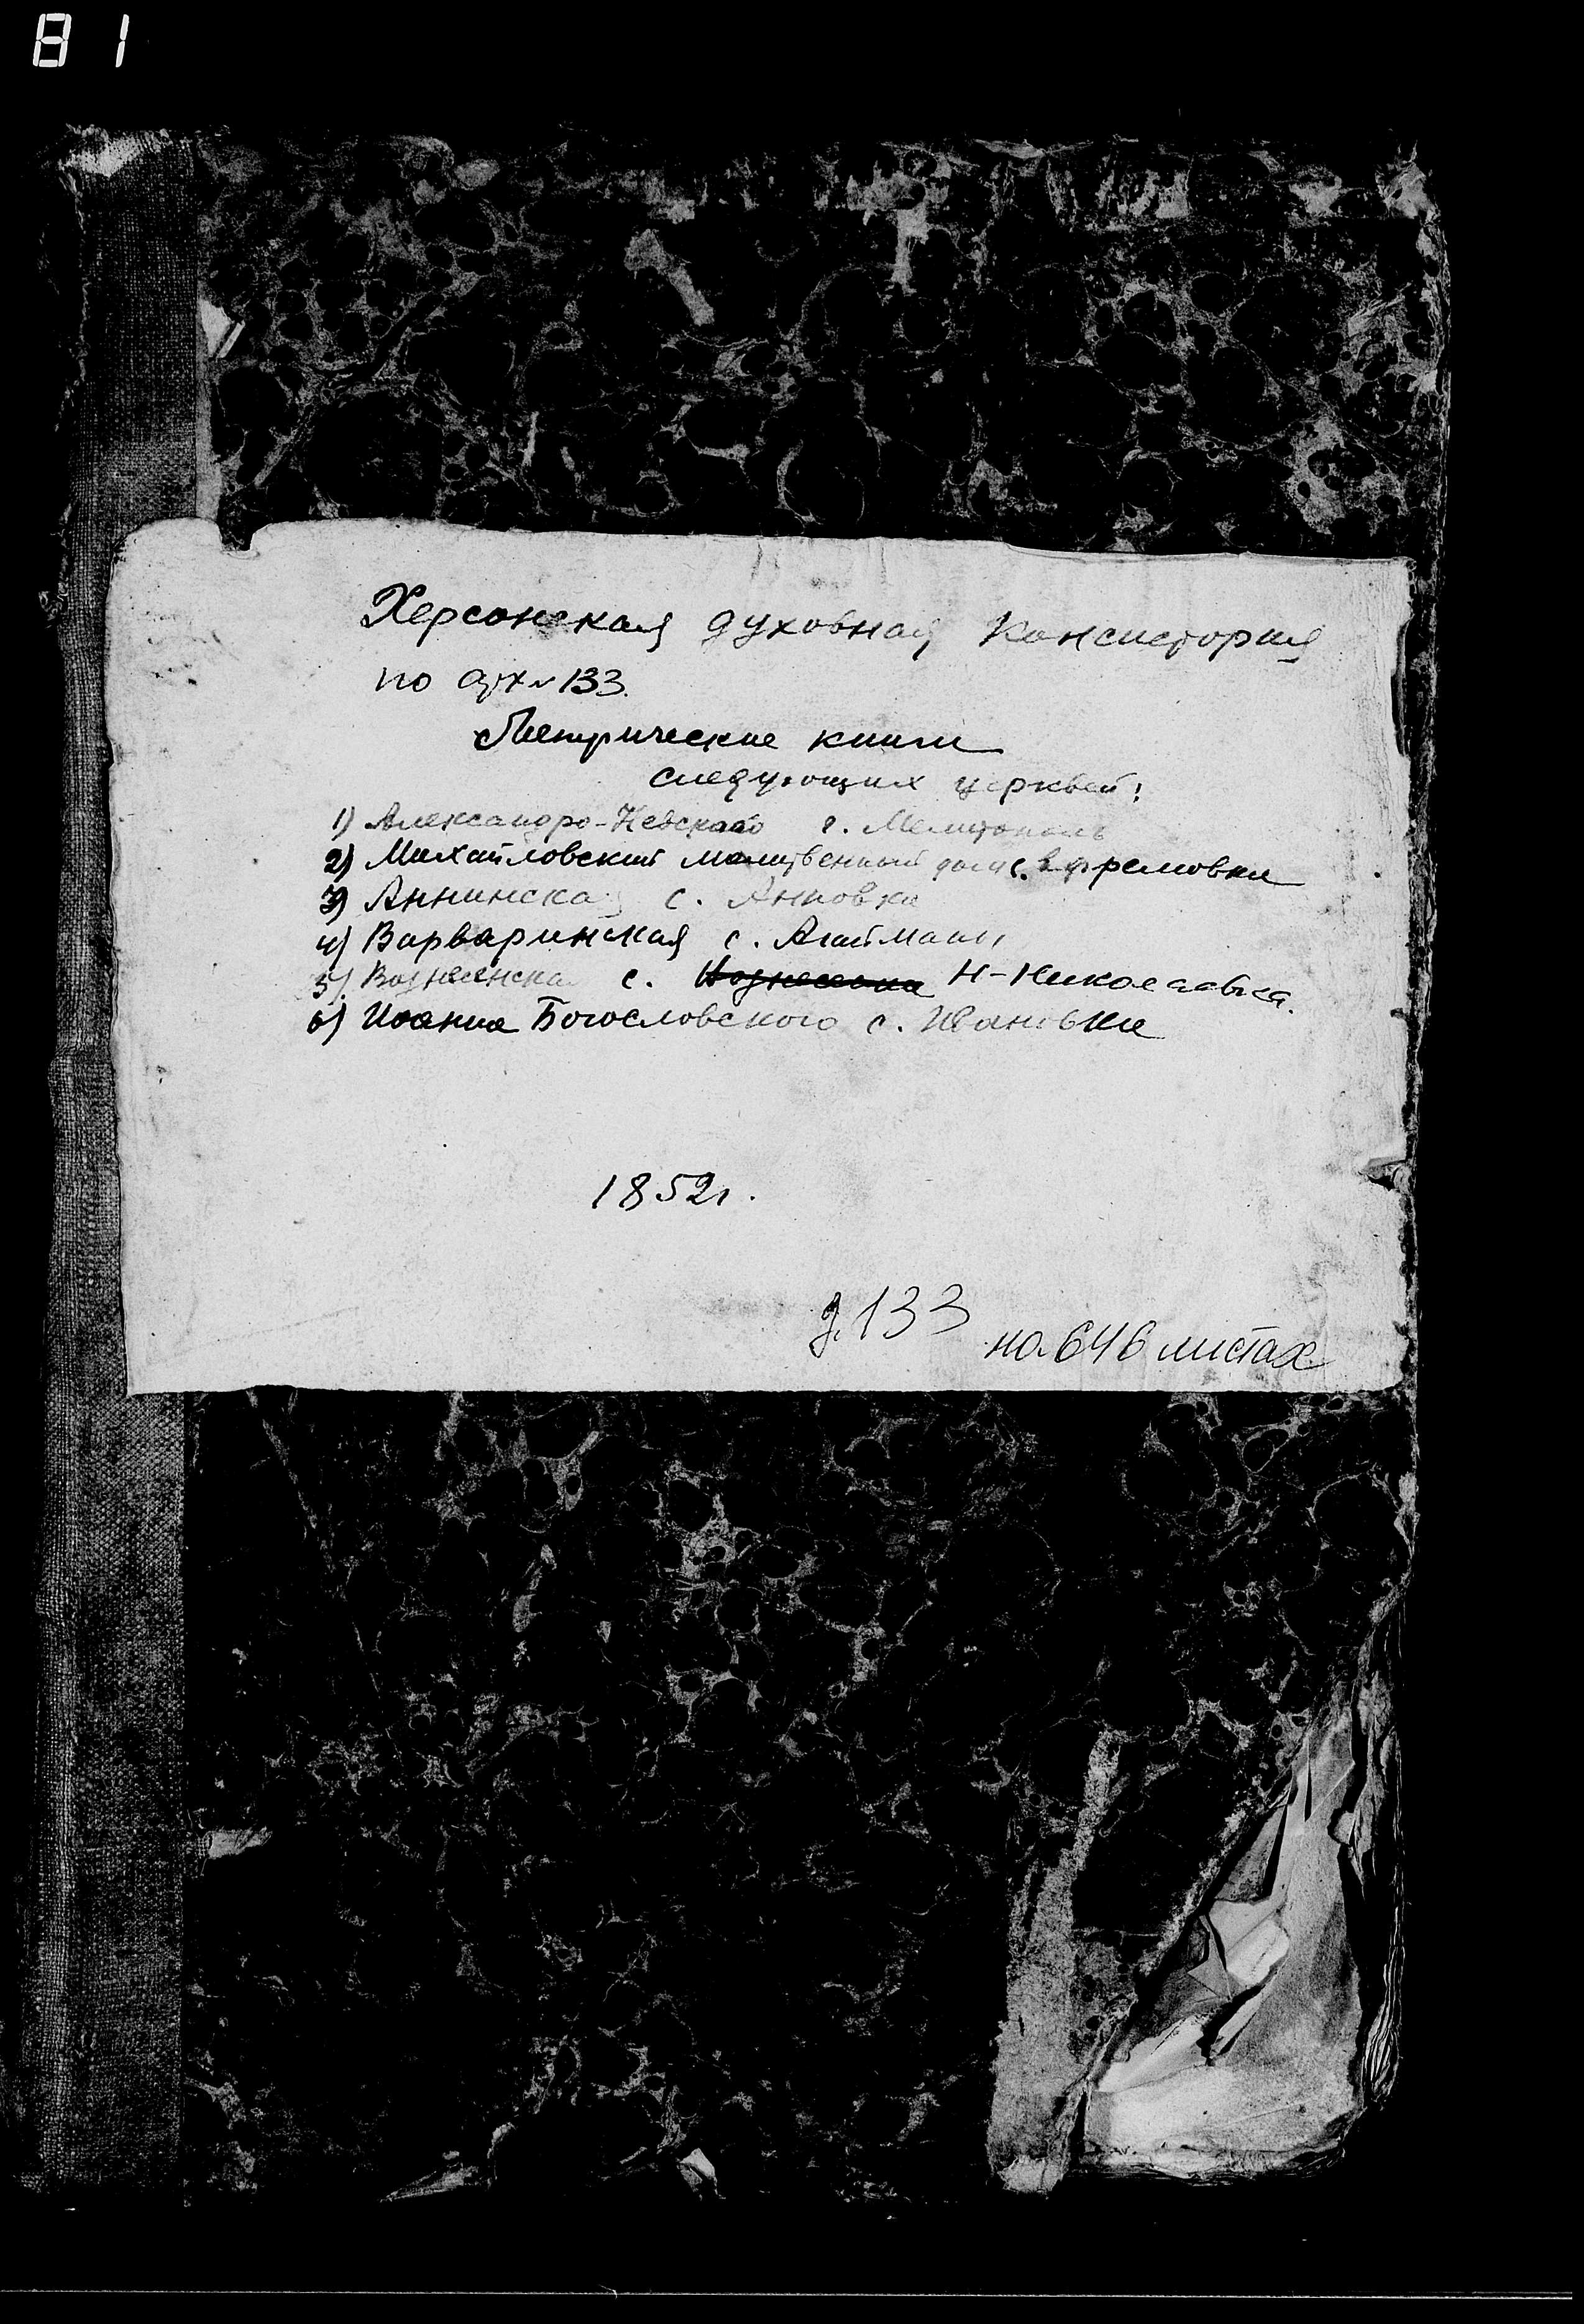 81
Херсонская духовная консистория
по арх № 133.
Метрические книги
следующих церквей:
1) Александро-Невского г. Мелитополь
2) Михайловский молитвенный дом с. Ефремовка
3) Аннинская с. Анновка
4) Варваринская с. Агайманы
5) Вознесенская с. Н-Николаевка.
6) Иоанна Богословского с. Ивановка
1852г.
д. 133 на 646 листах